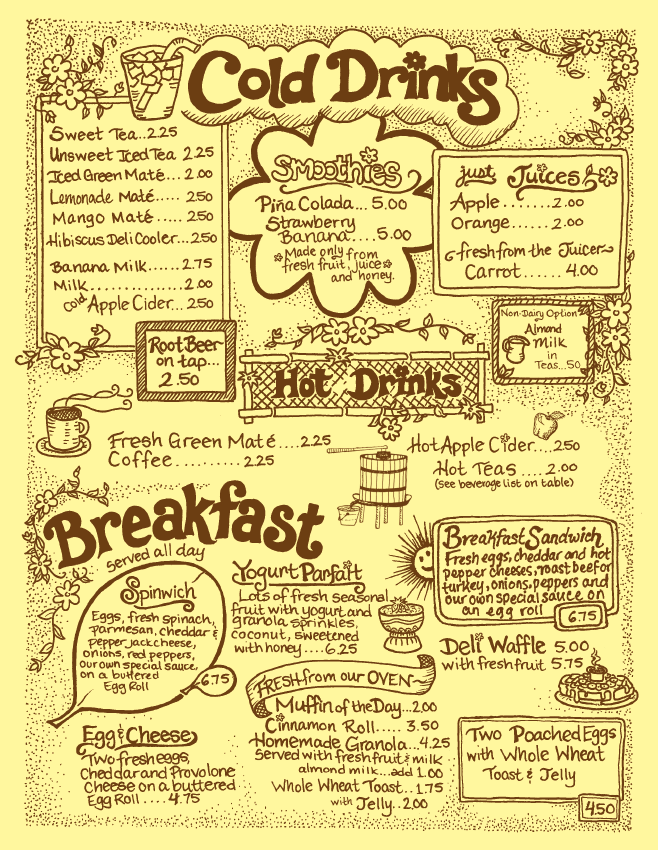 Cold Drinks
Sweet Tea..2.25
Unsweet Iced Tea 2.25
Iced Green Maté... 2.00
Lemonade Maté..... 2.50
Mango Maté..... 2.50
Hibiscus Deli Cooler...2.50
Banana Milk...... 2.75
Milk............... 2.00
cold Apple Cider... 2.50
Root Beer
on tap...
2.50
Smoothies
Piña Colada... 5.00
Strawberry
Banana....5.00
Made only from
fresh fruit, juice
and honey.
just Juices
Apple........2.00
Orange.......2.00
fresh from the Juicer
Carrot....... 4.00
Non-Dairy Option
Almond
Milk
in
Teas...50
Hot Drinks
Fresh Green Maté....2.25
Coffee.......... 2.25
Hot Apple Cider....2.50
Hot Teas ....2.00
(see beverage list on table)
Breakfast
served all day
Spinwich
Eggs, fresh spinach,
parmesan, cheddar &
pepper jack cheese,
onions, red peppers,
our own special sauce,
on a buttered
Egg Roll
6.75
Egg & Cheese
Two fresh eggs,
Cheddar and Provolone
Cheese on a buttered
Egg Roll .... 4.75
Yogurt Parfait
Lots of fresh seasonal
fruit with yogurt and
granola sprinkles,
coconut, sweetened
with honey....6.25
FRESH from our OVEN
Muffin of the Day...2.00
Cinnamon Roll..... 3.50
Homemade Granola...4.25
Served with fresh fruit & milk
almond milk...add 1.00
Whole Wheat Toast...1.75
with Jelly..2.00
Breakfast Sandwich
Fresh eggs, cheddar and hot
pepper cheeses, roast beef or
turkey, onions, peppers and
our own special sauce on
an egg roll
6.75
Deli Waffle 5.00
with fresh fruit 5.75
Two Poached Eggs
with Whole Wheat
Toast & Jelly
4.50